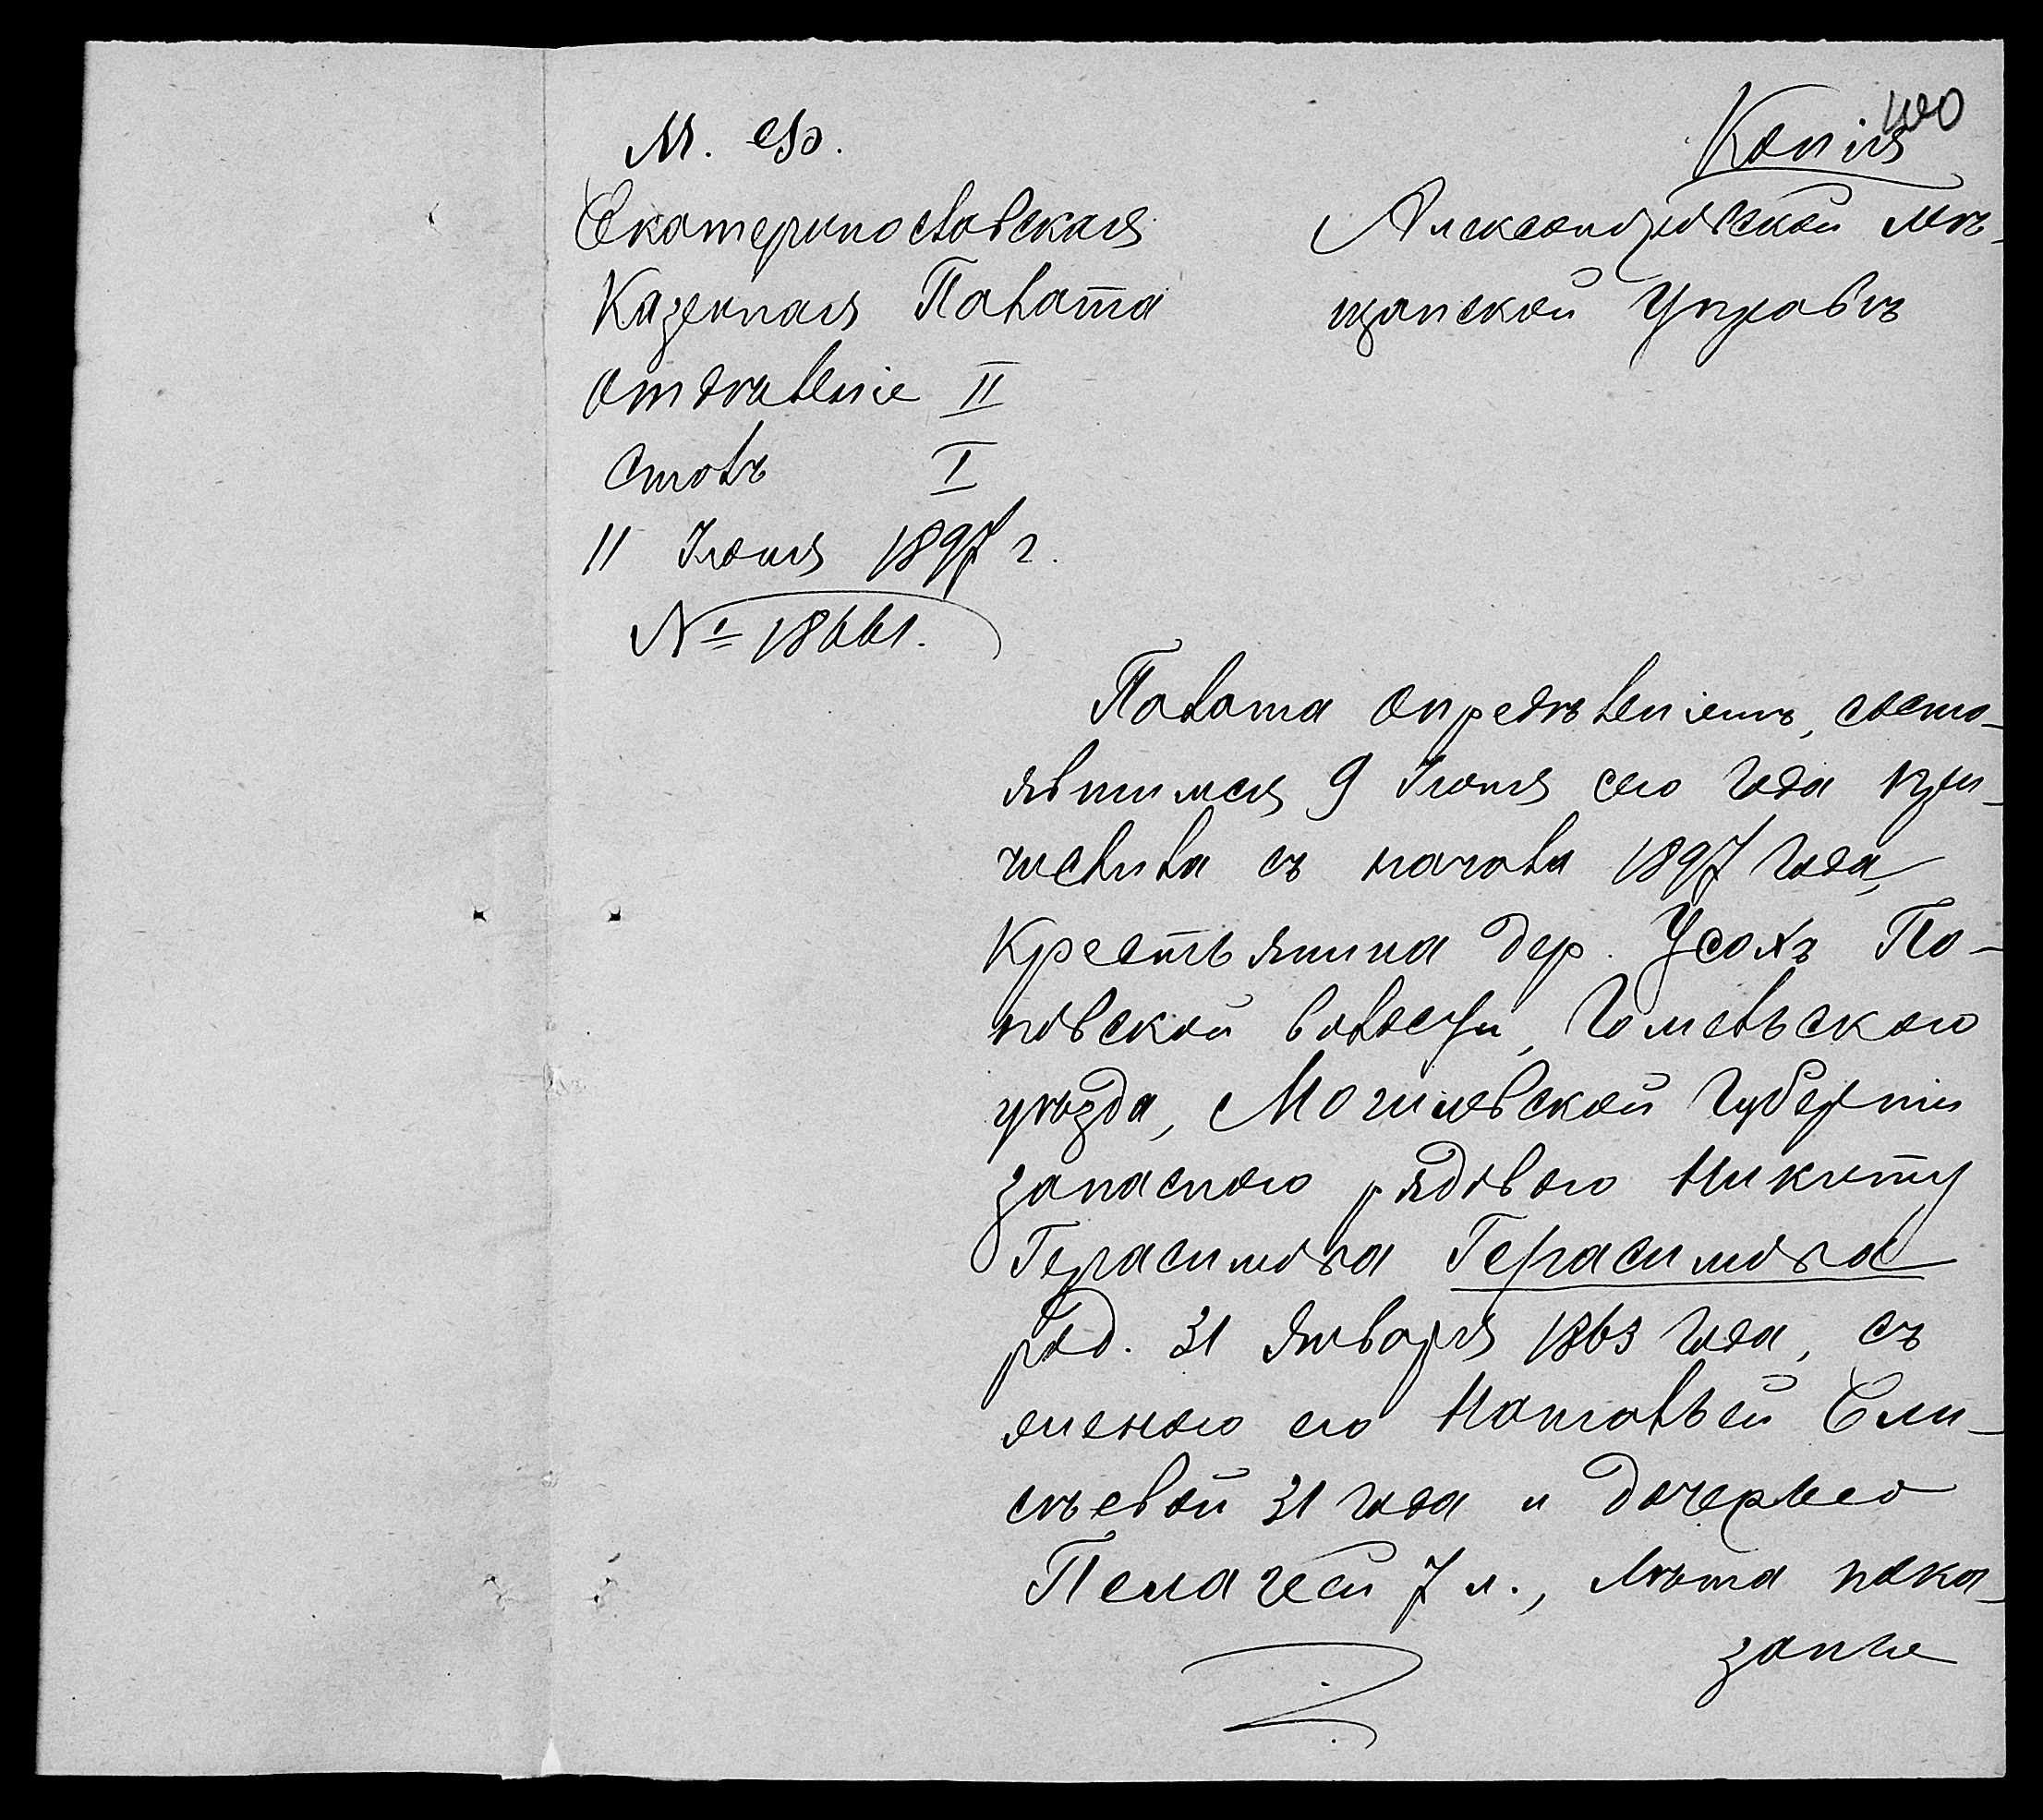 400
Копія
М. Ф.
Екатеринославская
Казенная Палата
Отдѣленіе II
Столъ I
11 Іюня 1897 г.
№ 18661.
Александровской мѣ-
щанской Управѣ
Палата опредѣленіемъ, состо-
явшимся 9 Іюня сего года при-
числила съ начала 1897 года,
крестьянина дер. Усохъ По-
повской волости, Гомельскаго
уѣзда, Могилевской губерніи
запаснаго рядоваго Никиту
Герасимова Герасимова
род. 31 Января 1863 года, съ
женою его Натальей Ели-
сѣевой 31 года и дочерью
Пелагеей 7 л., Лѣта пока-
заные